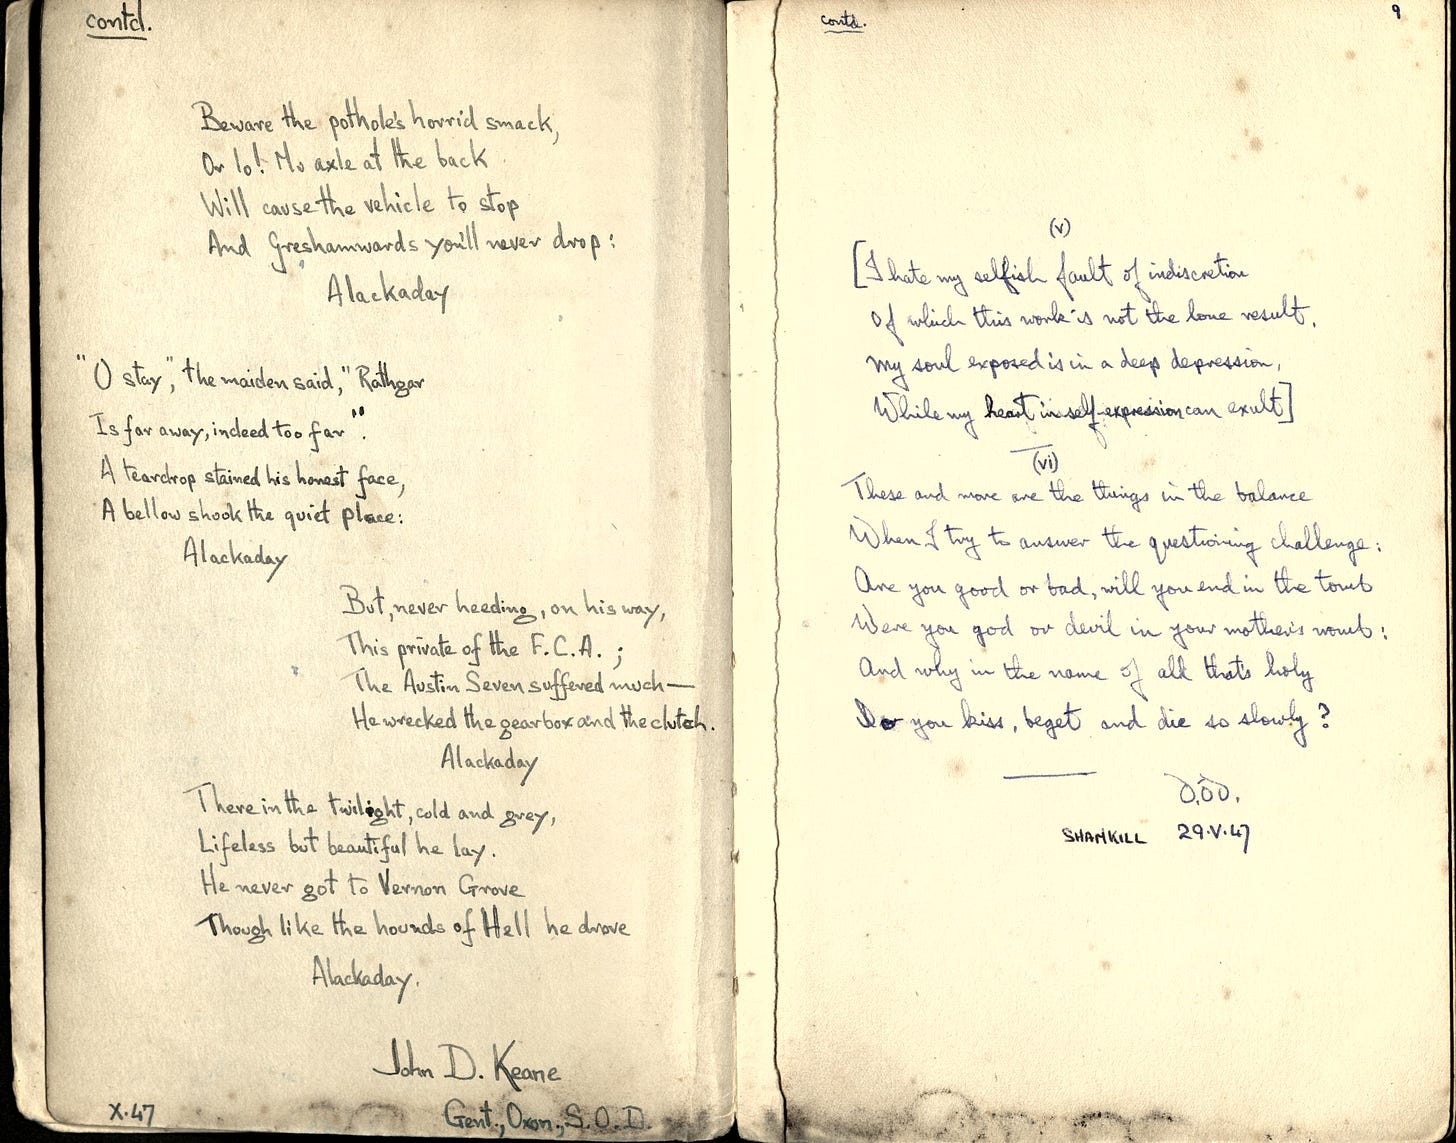 contd.
Beware the pothole's horrid smack,
Or lo! Mo axle at the back
Will cause the vehicle to stop
And Greshamwards you'll never drop:
Alackaday
"O stay", the maiden said, "Rathgar
Is far away, indeed too far".
A teardrop stained his honest face,
A bellow shook the quiet place:
Alackaday
But, never heeding, on his way,
This private of the F.C.A. ;
The Austin Seven suffered much—
He wrecked the gearbox and the clutch.
Alackaday
There in the twilight, cold and grey,
Lifeless but beautiful he lay.
He never got to Vernon Grove
Though like the hounds of Hell he drove
Alackaday.
John D. Keane
Gent., Oxon., S.O.D.
X.47
contd.
9
(v)
[I hate my selfish fault of indiscretion
Of which this work is not the lone result,
My soul exposed is in a deep depression,
While my heart in self-expression can exult]
(vi)
These and more are the things in the balance
When I try to answer the questioning challenge:
Are you good or bad, will you end in the tomb
Were you god or devil in your mother's womb:
And why in the name of all that's holy
Do you kiss, beget and die so slowly?
SHANKILL 29.V.47